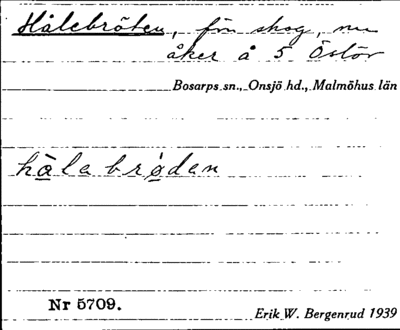 Hålebröten, förr skog, nu
åker å 5 Östör
Bosarps sn., Onsjö hd., Malmöhus län
håla brødan
Nr 5709.
Erik W. Bergenrud 1939